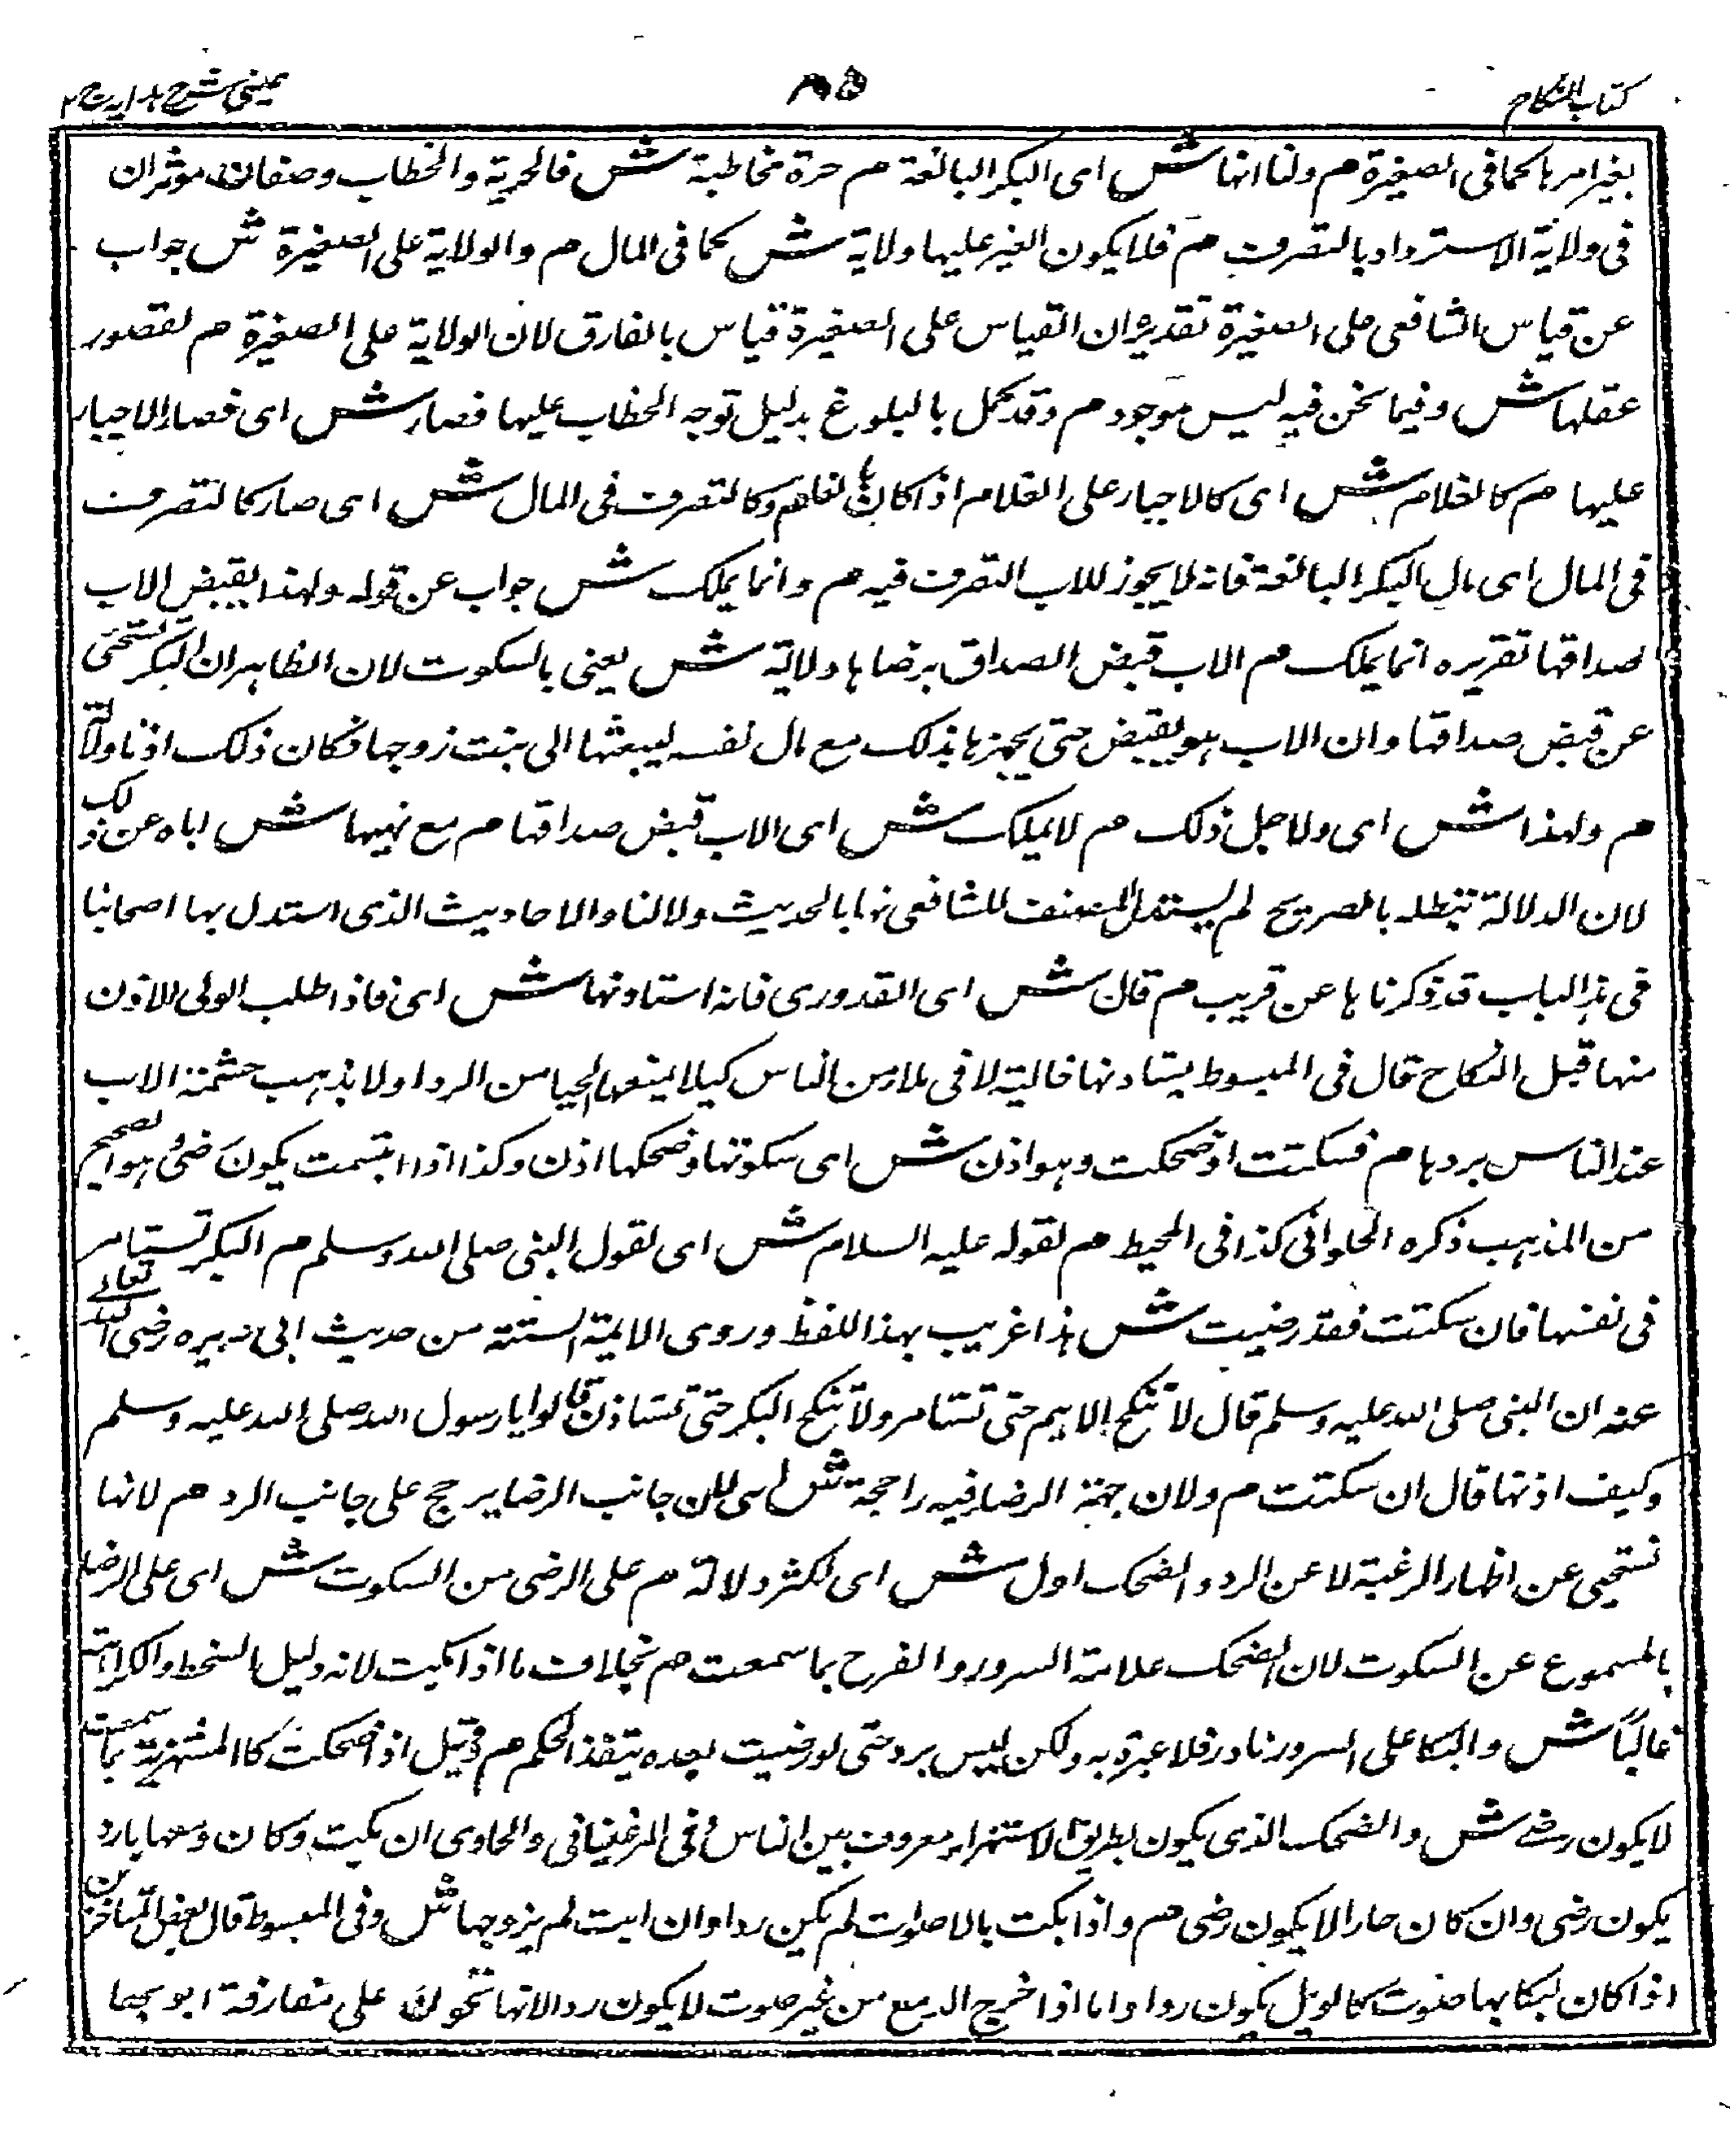 كتاب النكاح
٨٥
عینی شرح ہدایہ ج ٢
بغير امرها كما فى الصغيرة م ولنا انها ش اى البكر البالغة م حرة مخاطبة ش فالحرية والخطاب وصفان مؤثران
فى ولاية الاسترداد بالتصرف م فلا يكون للغير عليها ولاية ش كما فى المال م والولاية على الصغيرة ش جواب
عن قياس الشافعى على الصغيرة تقديره ان القياس على الصغيرة قياس بالفارق لان الولاية على الصغيرة م لقصور
عقلها ش وفيما نحن فيه ليس موجود م وقد كمل بالبلوغ بدليل توجه الخطاب عليها فصار ش اى فصار الاجبار
عليها م كالغلام ش اى كالاجبار على الغلام اذا كان بالغا م وكالتصرف فى المال ش اى صار كالتصرف
فى المال اى مال البكر البالغة فانه لا يجوز للاب التصرف فيه م وانما يملك ش جواب عن قوله ولهذا يقبض الاب
صداقها تقريره انما يملك م الاب قبض الصداق برضاها دلالة ش يعنى بالسكوت لان الظاهر ان البكر تستحى
عن قبض صداقها وان الاب هو يقبض حتى يجهزها بذلك مع مال نفسه ليبعثها الى بنت زوجها فكان ذلك اذنا دلالة
م ولهذا ش اى ولاجل ذلك م لا يملك ش اى الاب قبض صداقها م مع نهيها ش اباه عن ذلك
لان الدلالة تبطله بالصريح لم يستدل المصنف للشافعى نها بالحديث ولا لنا والاحاديث الذى استدل بها اصحابنا
فى هذا الباب قد ذكرناها عن قريب م قال ش اى القدورى فانه استاذنها ش اى فاذا طلب الولى للاذن
منها قبل النكاح قال فى المبسوط يستاذنها خالية لا فى ملا من الناس كيلا يمنعها الحيا من الردا ولا يذهب حشمة الاب
عند الناس بردها م فسكتت او ضحكت وهو اذن ش اى سكوتها وضحكها اذن وكذا اذا ابتسمت يكون رضى وهو الصحيح
من المذهب ذكره الحلوانى كذا فى المحيط م لقوله عليه السلام ش اى لقول النبى صلى الله وسلم م البكر تستامر
فى نفسها فان سكتت فقد رضيت ش هذا غريب بهذا اللفظ وروى الايمة الستة من حديث ابى هريره رضى الله تعالى
عنه ان النبى صلى الله عليه وسلم قال لا تنكح الايم حتى تستامر ولا تنكح البكر حتى تستاذن قالوا يا رسول الله صلى الله عليه وسلم
وكيف اذنها قال ان سكتت م ولان جهة الرضا فيه راجحة ش اى لان جانب الرضا يرجح على جانب الرد م لانها
تستحيى عن اظهار الرغبة لا عن الرد والضحك ادل ش اى اكثر دلالة م على الرضى من السكوت ش اى على الرضا
بالمسموع عن السكوت لان الضحك علامة السرور والفرح بما سمعت م بخلاف ما اذا بكيت لانه دليل السخط والكراهة
غالبًا ش والبكا على السرور نادر فلا عبرة به ولكن ليس برد حتى لو رضيت بعده ينفذ الحكم م قيل اذا ضحكت كالمستهزية بما سمعت
لا يكون رضى ش والضحك الذى يكون بطريق الاستهزاء معروف بين الناس وفى المرغينانى والحاوى ان بكيت وكان دمعها بارد
يكون رضى وان كان حارا لا يكون رضى م واذا بكت بالاصوات لم يكن ردا وان ابيت لم يزوجها ش وفى المبسوط قال بعض المتاخرين
اذا كان لبكائها صوت كالويل يكون ردا واما اذا خرج الدمع من غير صوت لا يكون ردا لانها تحزن على مفارقة ابويها